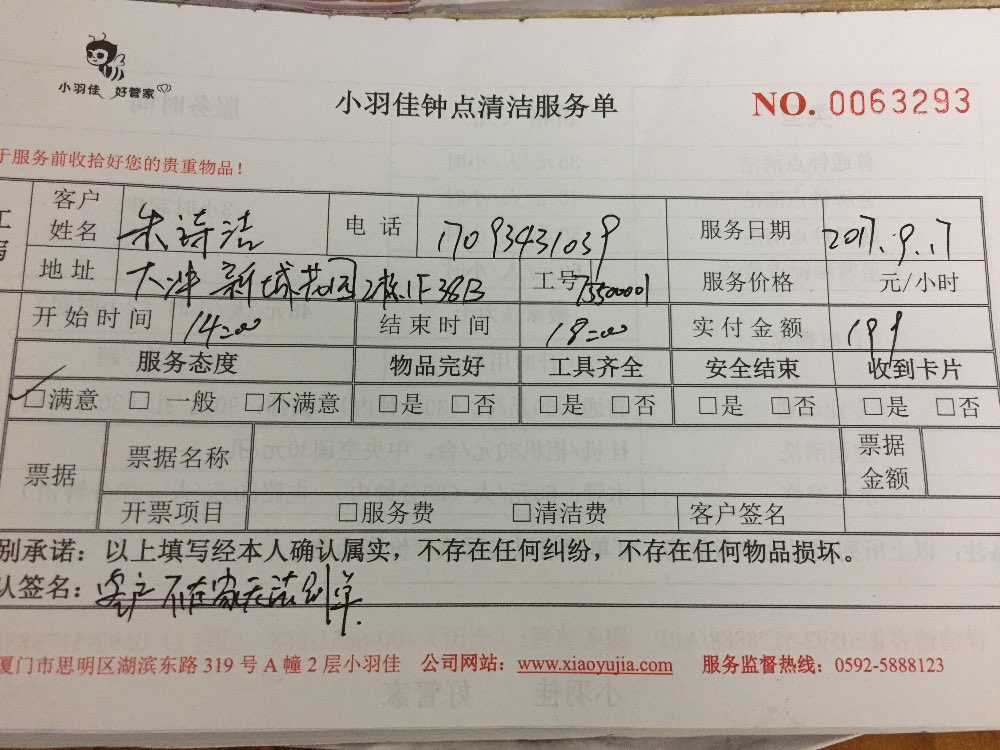 小羽佳 好管家
小羽佳钟点清洁服务单
NO. 0063293
于服务前收拾好您的贵重物品！
客户姓名 朱诗洁 电话 17093431039 服务日期 2017.9.17
地址 新城花园2栋1F38B 工号 75500001 服务价格 元/小时
开始时间 14:00 结束时间 18:00 实付金额 199
服务态度 物品完好 工具齐全 安全结束 收到卡片
□满意 □一般 □不满意 □是 □否 □是 □否 □是 □否 □是 □否
票据 票据名称 票据金额
开票项目 □服务费 □清洁费 客户签名
别承诺：以上填写经本人确认属实，不存在任何纠纷，不存在任何物品损坏。
认签名：客户不在家无法刷单
厦门市思明区湖滨东路 319 号 A 幢 2 层小羽佳 公司网站：www.xiaoyujia.com 服务监督热线：0592-5888123